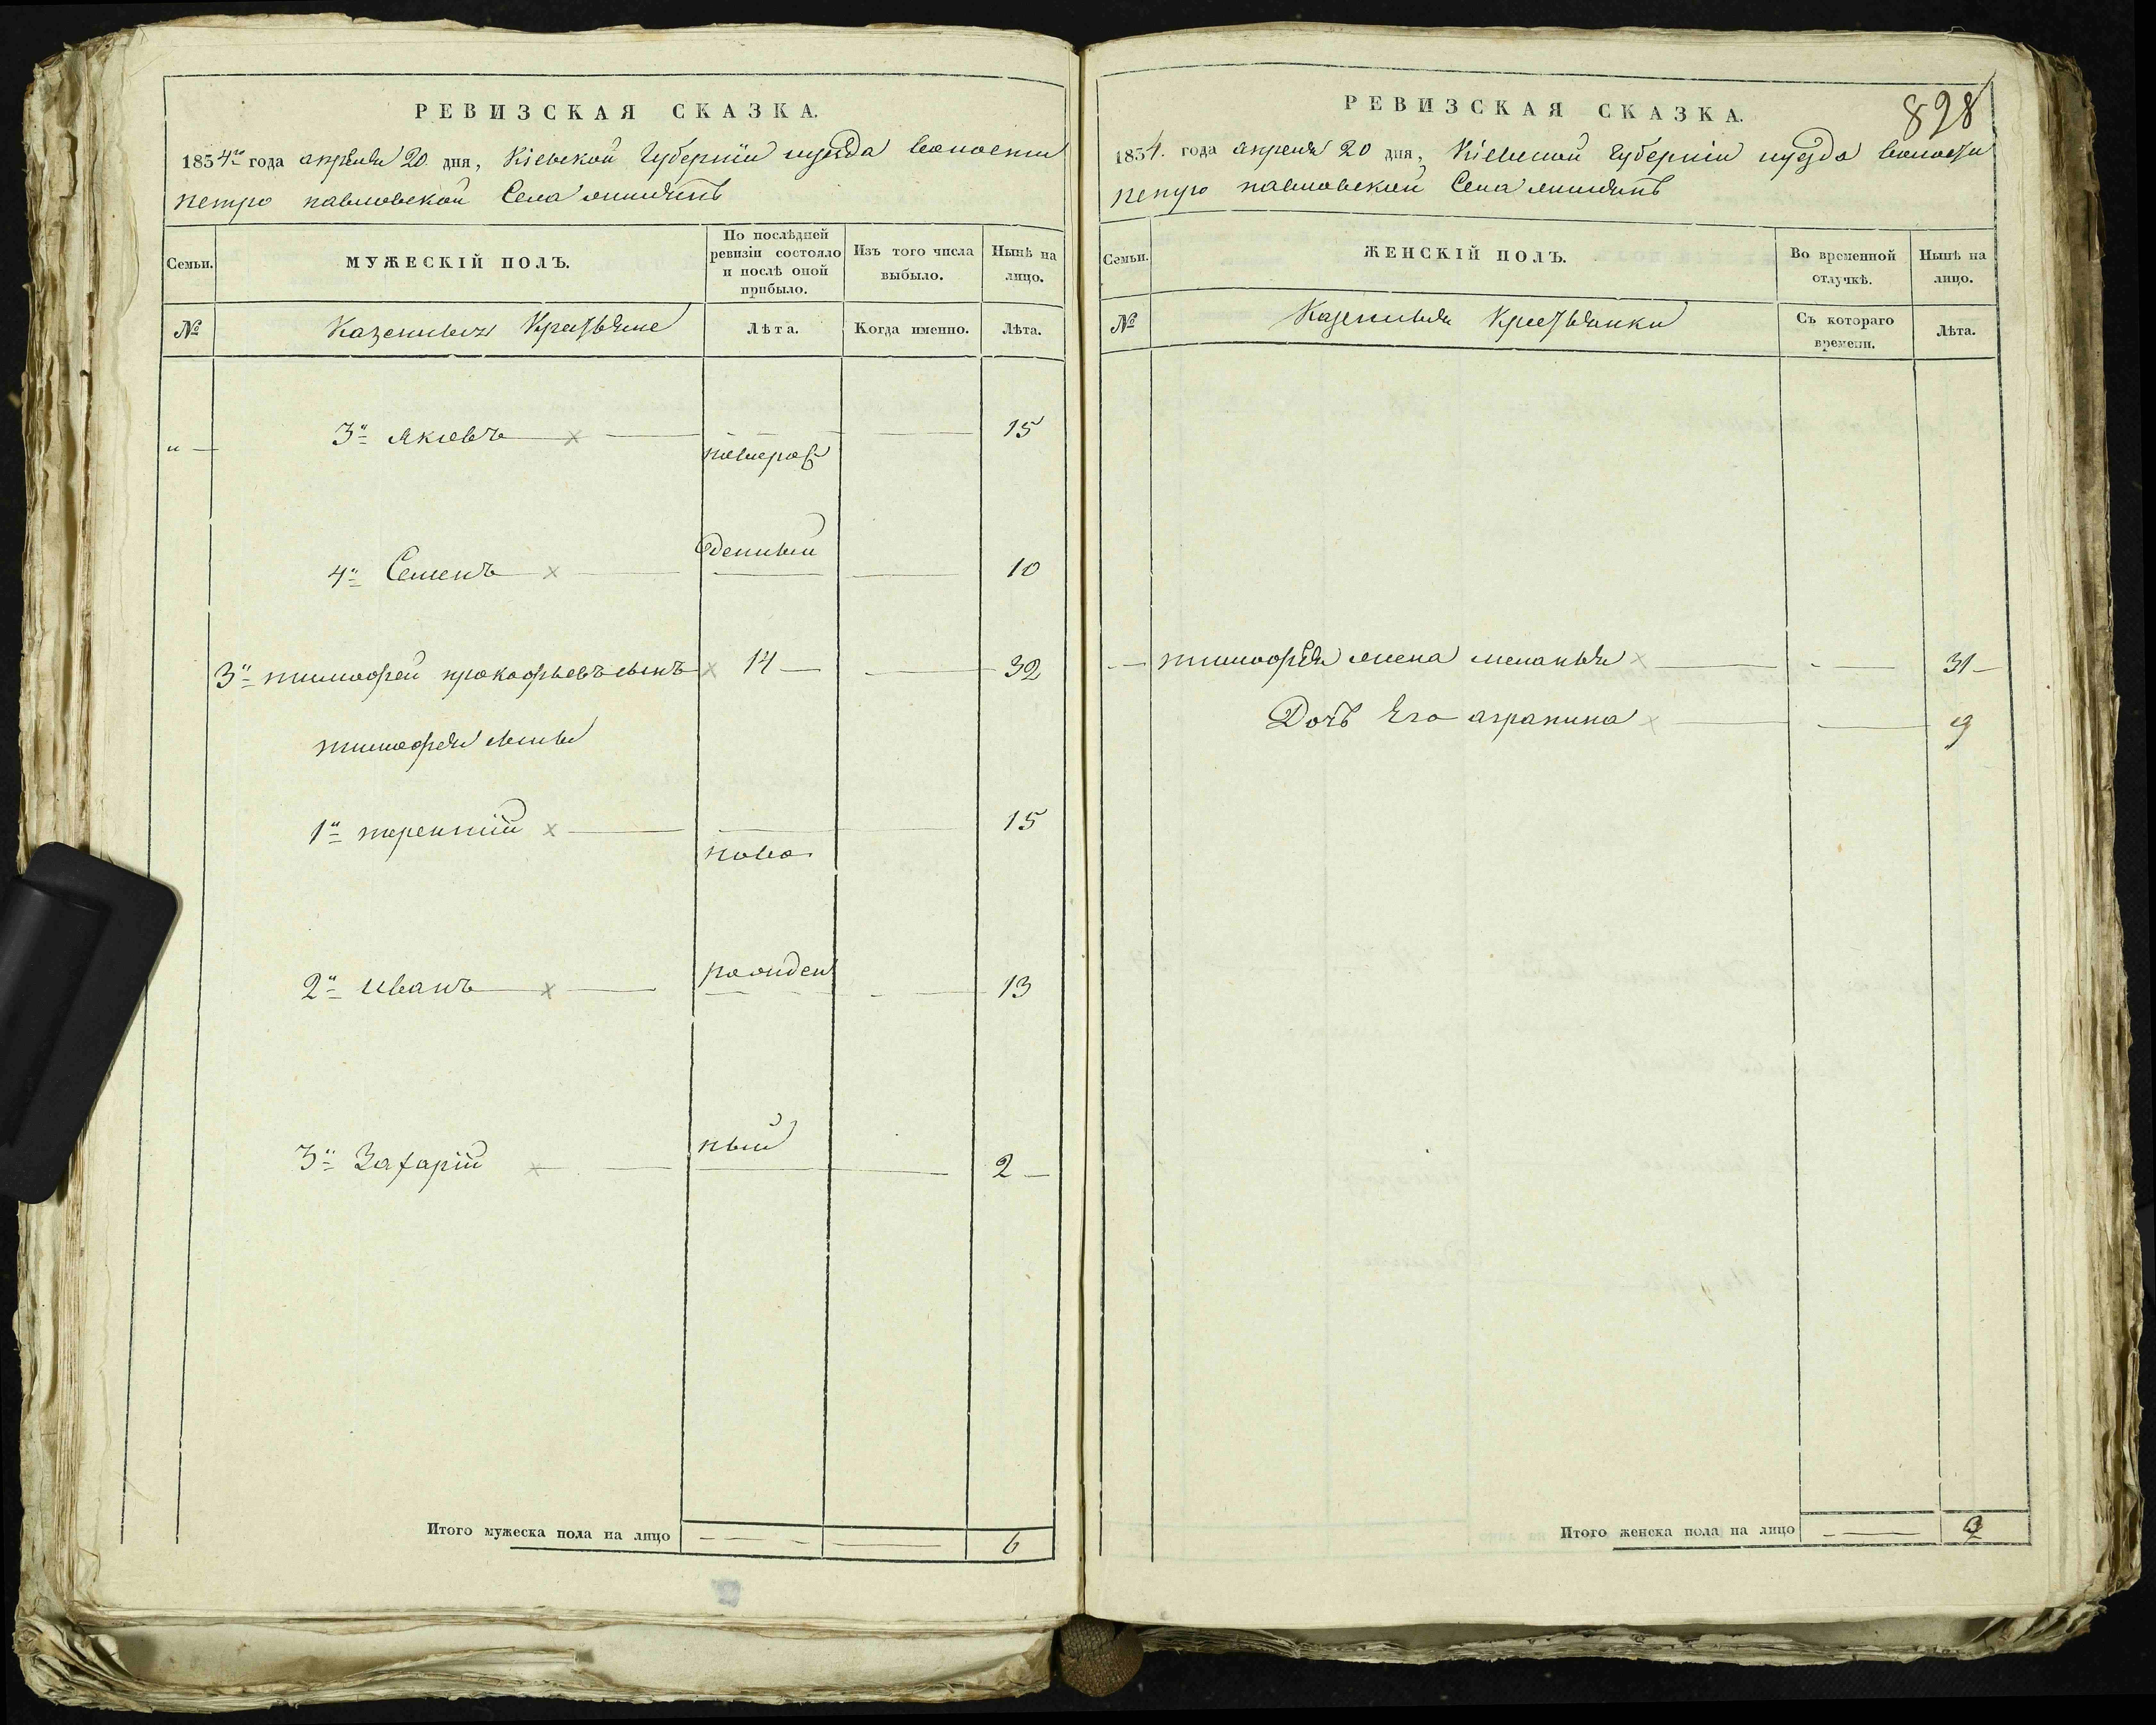 РЕВИЗСКАЯ СКАЗКА.
1834го года апрѣля 20 дня, Кіевской Губерніи иуезда волости
петро павловской Села
Семьи.
МУЖЕСКІЙ ПОЛЪ.
По послѣдней ревизіи состояло и послѣ оной прибыло.
Изъ того числа выбыло.
Нынѣ на лицо.
№
Казенныхъ Крестьяне
Лѣта.
Когда именно.
Лѣта.
" — 3й Яковъ 15
новорож
денный
4й Семенъ 10
3й тимофей прокофьевъ сынъ 14 32
тимофея сыны
1й терентій 15
ново
рожден
2й Иванъ 13
ный
3й Захарій 2
Итого мужеска пола на лицо 6
828
РЕВИЗСКАЯ СКАЗКА.
1834. года апреля 20 дня, Кіевской Губерніи иуезда волости
петро павловской Села
Семьи.
ЖЕНСКІЙ ПОЛЪ.
Во временной отлучкѣ.
Нынѣ на лицо.
№
Казенныя Крестьянки
Съ котораго времени.
Лѣта.
тимофея жена меланья 31
Дочь Его аграпина 9
Итого женска пола на лицо 2